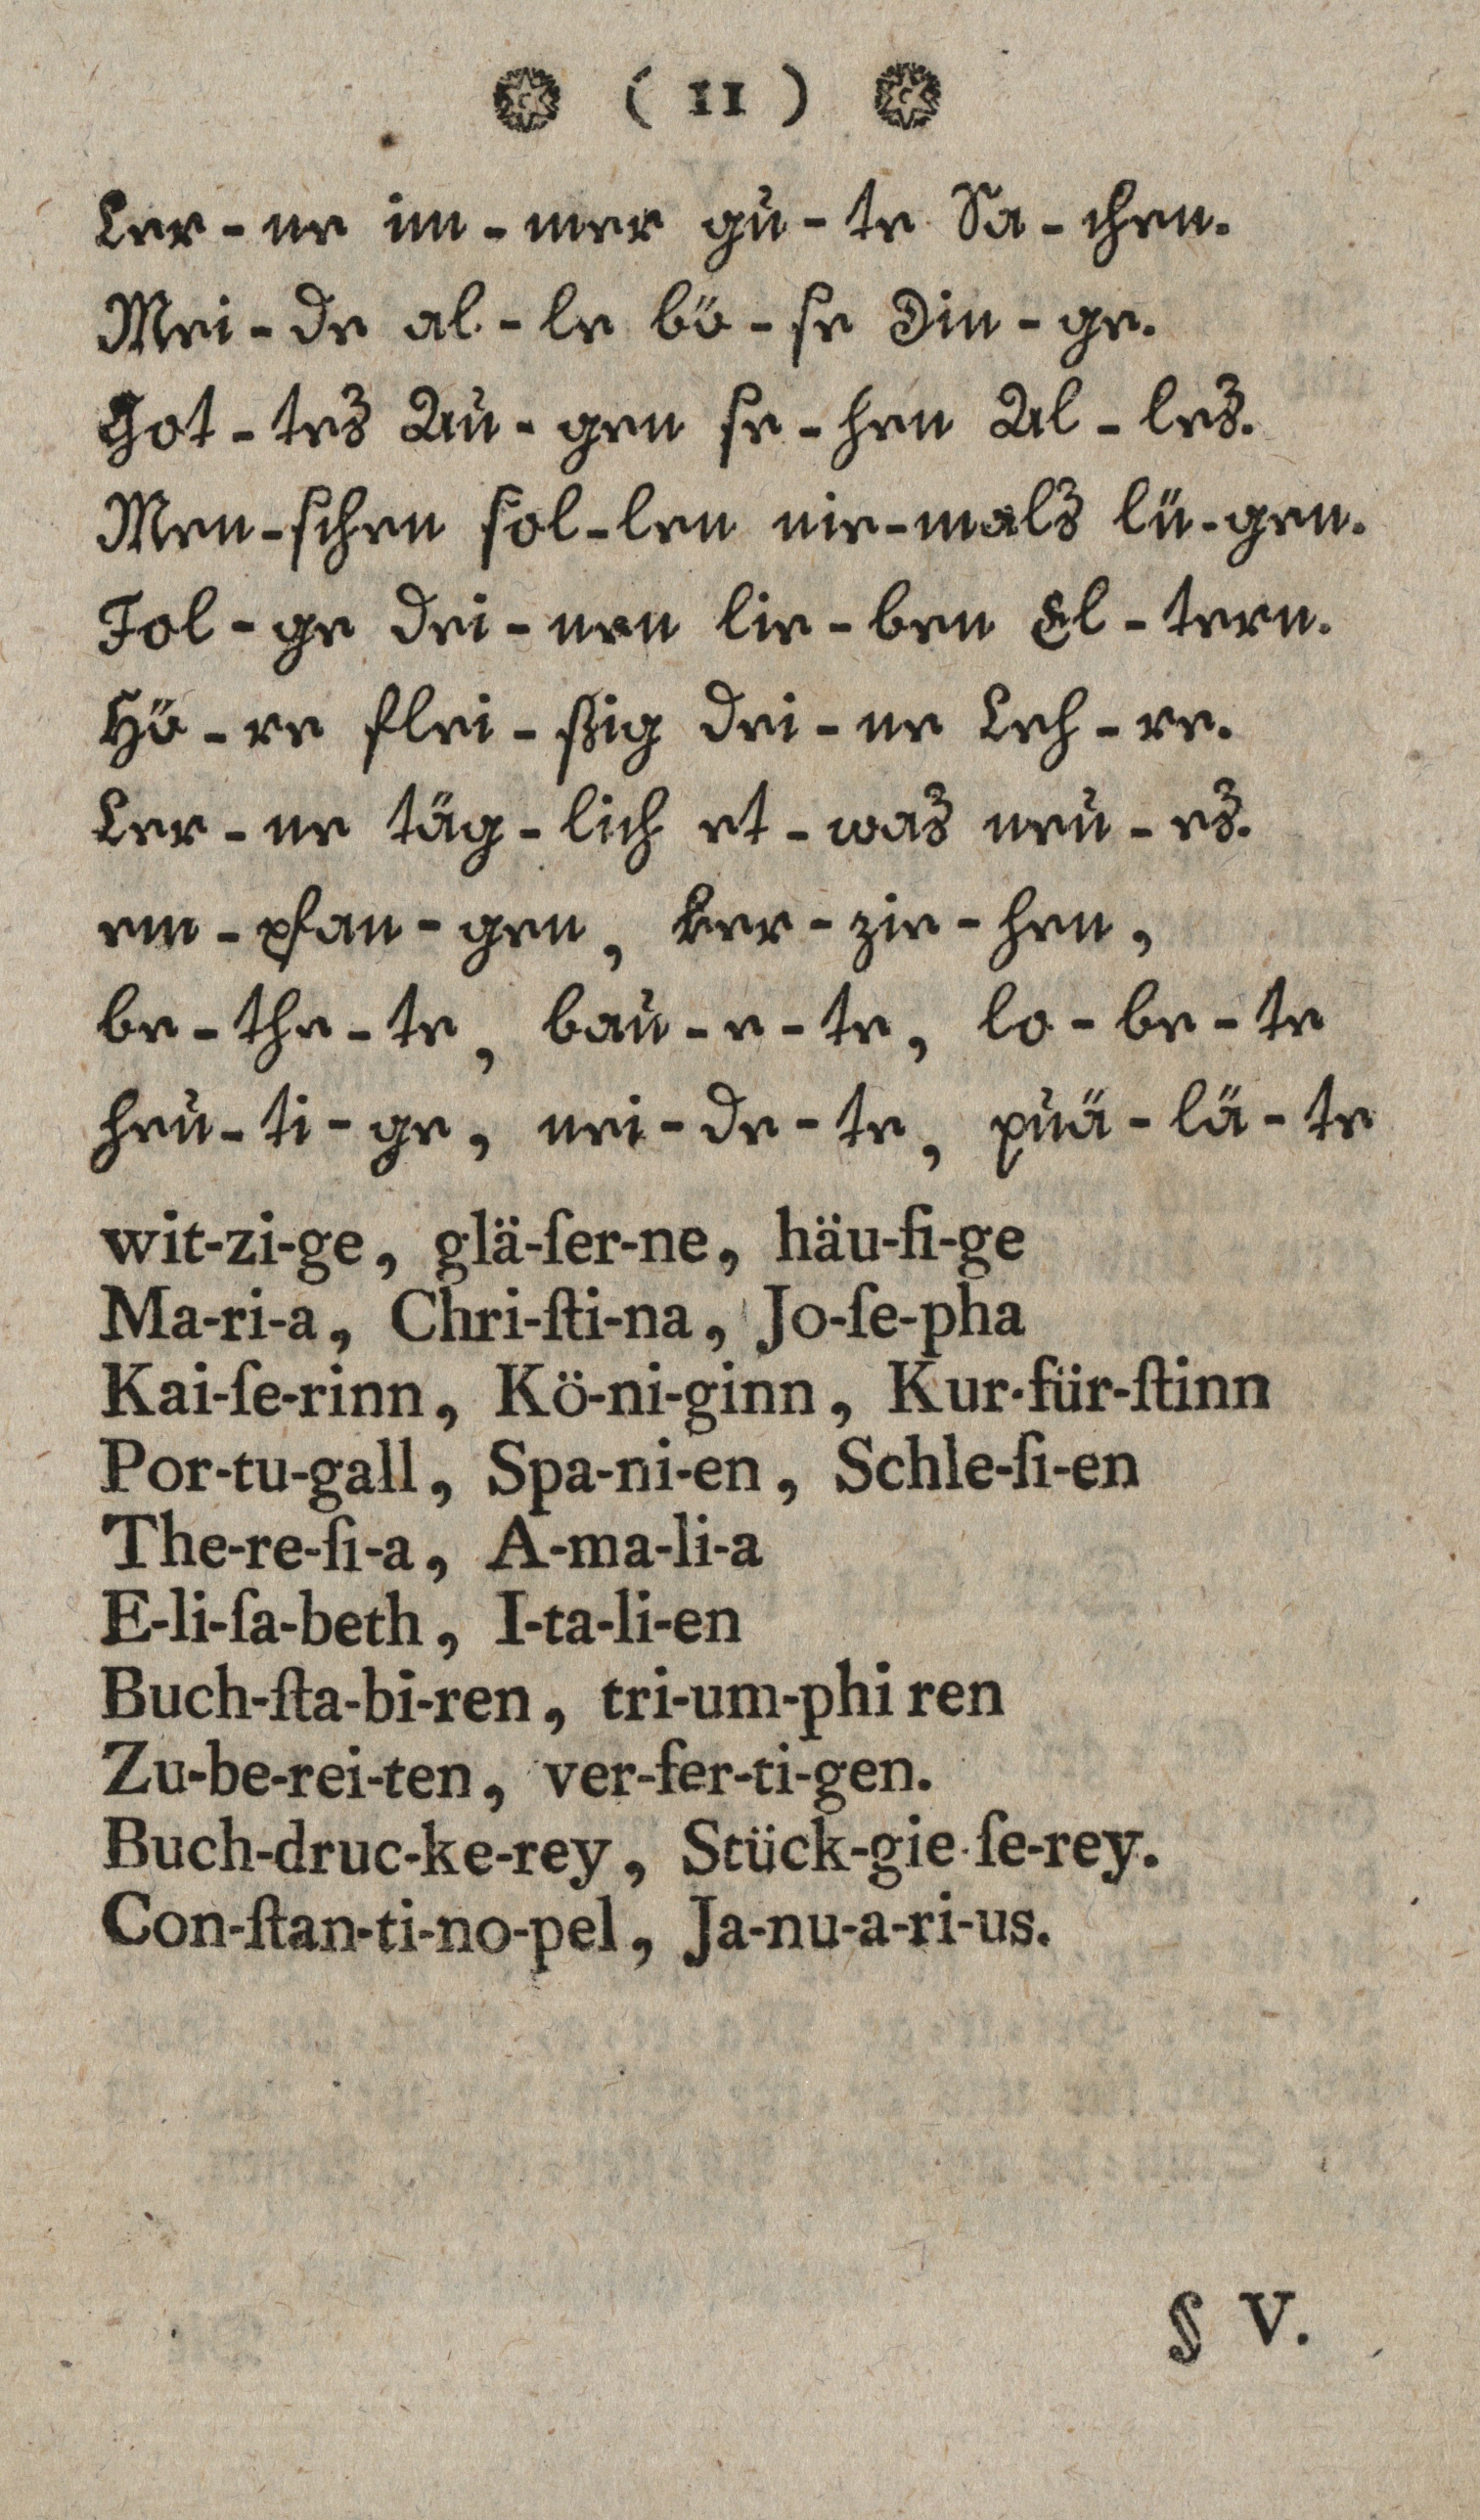 ( 11 )
Ler-ne im-mer gu-te Sa-chen.
Mei-de al-le bö-ſe Din-ge.
Got-tes Au-gen ſe-hen Al-les.
Men-ſchen ſol-len nie-mals lü-gen.
Fol-ge dei-nen lie-ben El-tern.
Hö-re flei-ßig dei-ne Leh-re.
Ler-ne täg-lich et-was neu-es.
em-pfan-gen, ver-zie-hen,
be-the-te, bau-e-te, lo-be-te
heu-ti-ge, nei-de-te, quä-lä-te
wit-zi-ge, glä-ſer-ne, häu-fi-ge
Ma-ri-a, Chri-ſti-na, Jo-ſe-pha
Kai-ſe-rinn, Kö-ni-ginn, Kur-für-ſtinn
Por-tu-gall, Spa-ni-en, Schle-ſi-en
The-re-ſi-a, A-ma-li-a
E-li-ſa-beth, I-ta-li-en
Buch-ſta-bi-ren, tri-um-phi ren
Zu-be-rei-ten, ver-fer-ti-gen.
Buch-druc-ke-rey, Stück-gie-ſe-rey.
Con-ſtan-ti-no-pel, Ja-nu-a-ri-us.
§ V.